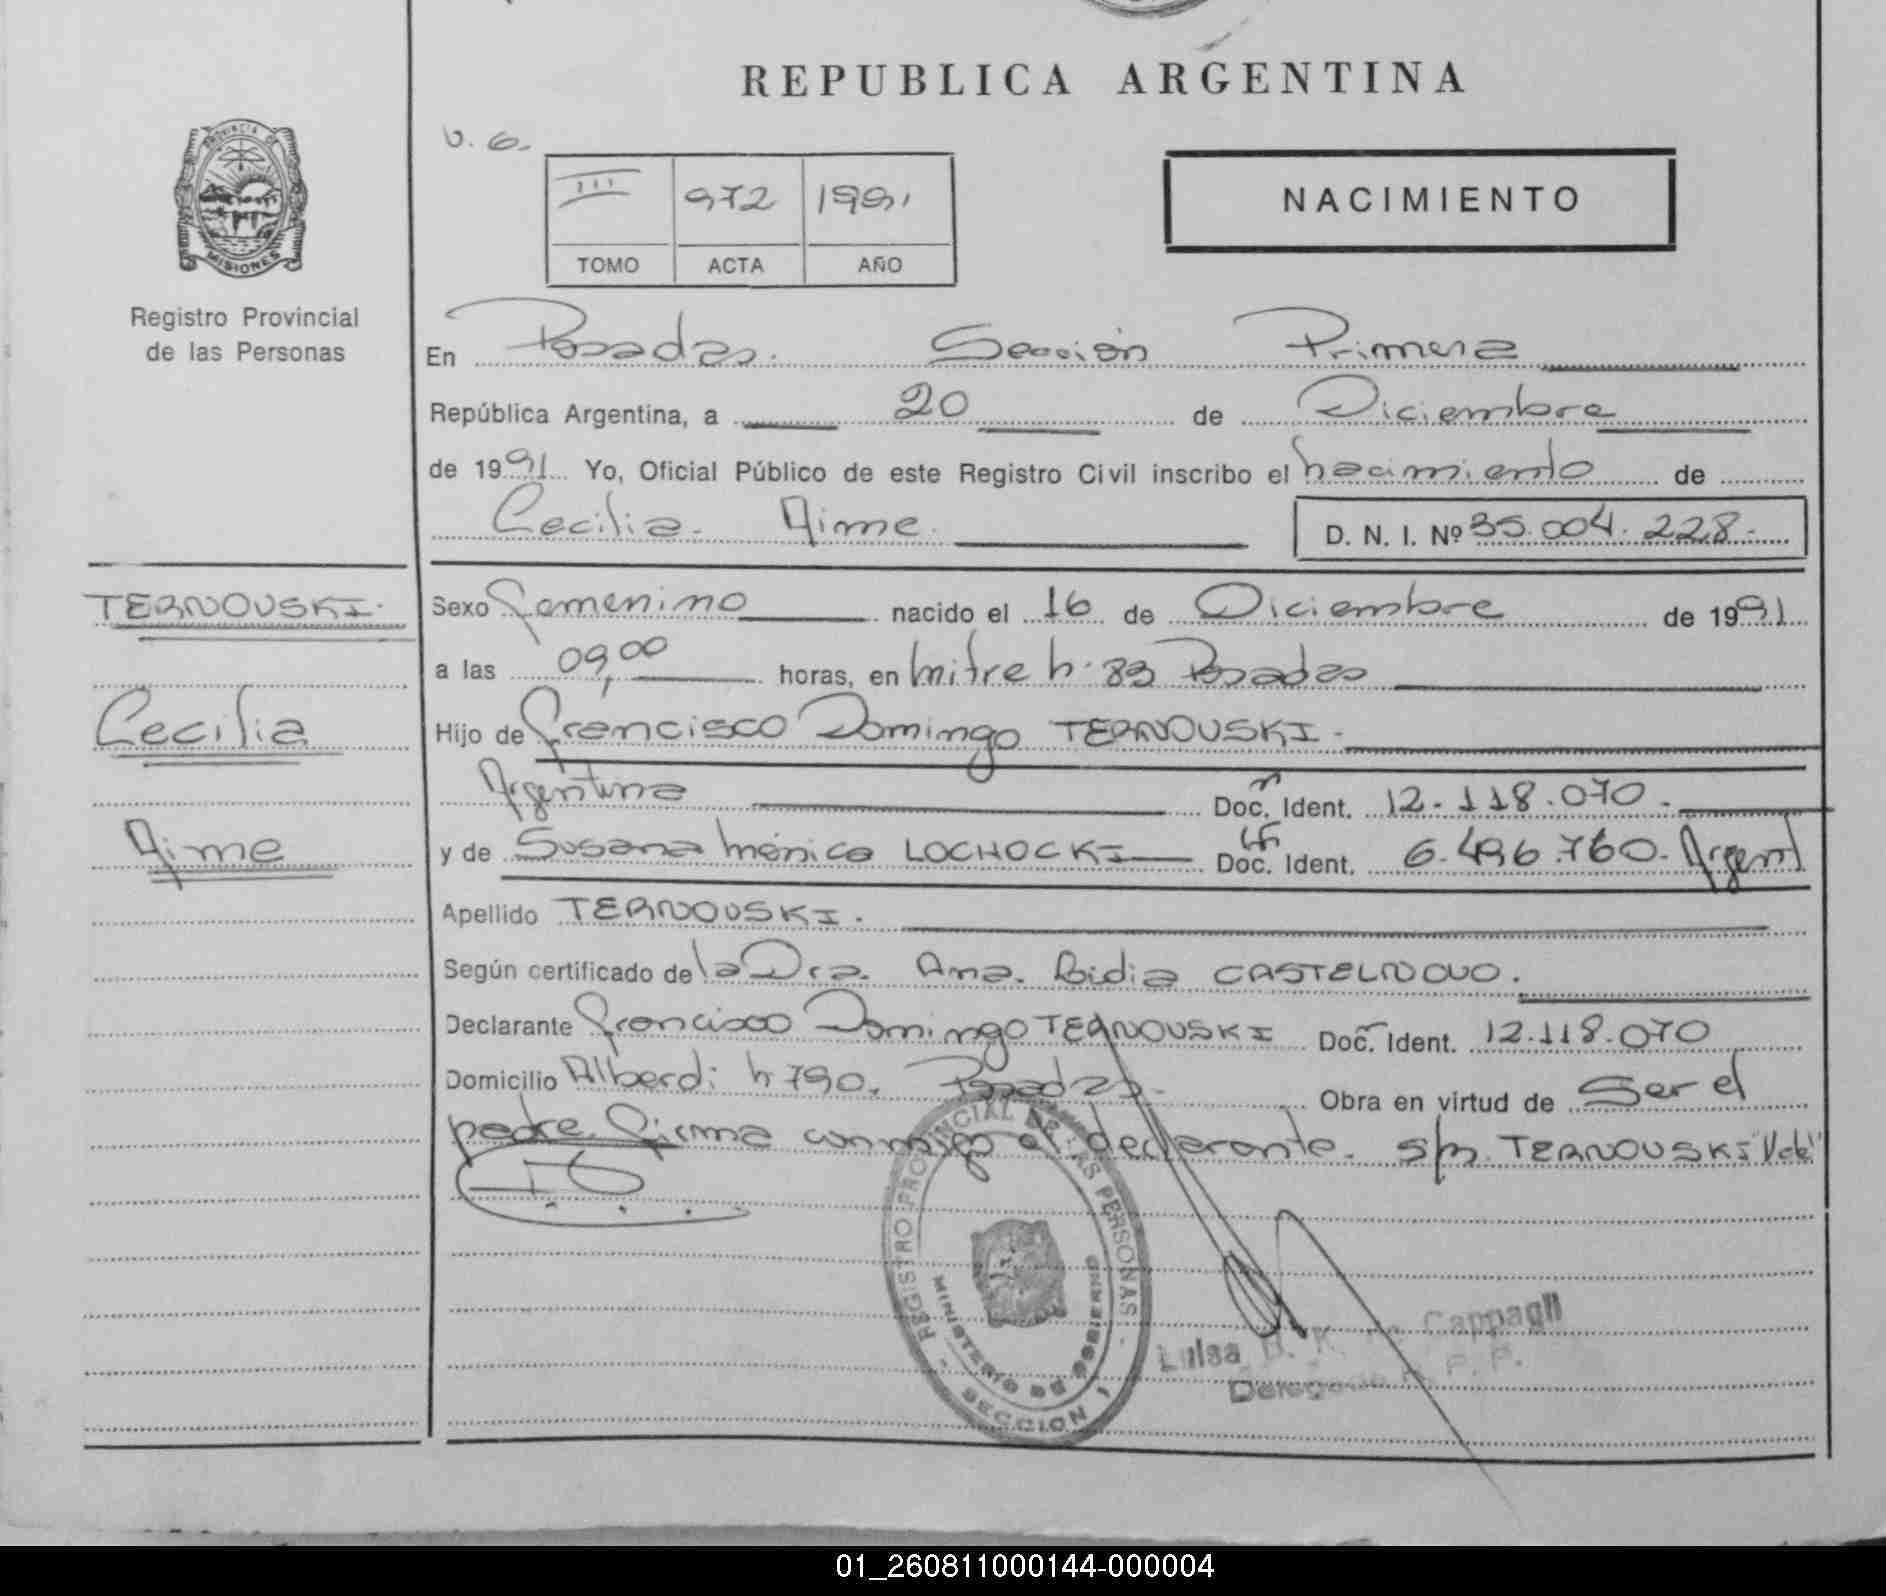 REPUBLICA ARGENTINA
PROVINCIA DE
MISIONES
Registro Provincial
de las Personas
III 972 1991
TOMO ACTA AÑO
NACIMIENTO
En Posadas. Sección Primera
República Argentina, a 20 de Diciembre
de 1991 Yo, Oficial Público de este Registro Civil inscribo el nacimiento de
Cecilia. Aime. D. N. I. Nº 35.004.228.-
TERNOVSKI.
Cecilia
Aime
Sexo Femenino nacido el 16 de Diciembre de 1991
a las 09,00 horas, en Mitre Nº 83 Posadas
Hijo de Francisco Domingo TERNOVSKI.
Argentina Doc. Ident. 12.118.070.
y de Susana Mónica LOCHOCKI Doc. Ident. 6.496.760. Argent
Apellido TERNOVSKI.
Según certificado de la Dra. Ana. Lidia CASTELNOVO.
Declarante Francisco Domingo TERNOVSKI Doc. Ident. 12.118.070
Domicilio Alberdi Nº 790. Posadas. Obra en virtud de Ser el
padre. Firma conmigo el declarante. s/r. TERNOVSKI "Vale"
REGISTRO PROVINCIAL DE LAS PERSONAS
MINISTERIO DE GOBIERNO
SECCION 1
Luisa B. K. de Cappagli
Delegada R. P. P.
01_260811000144-000004